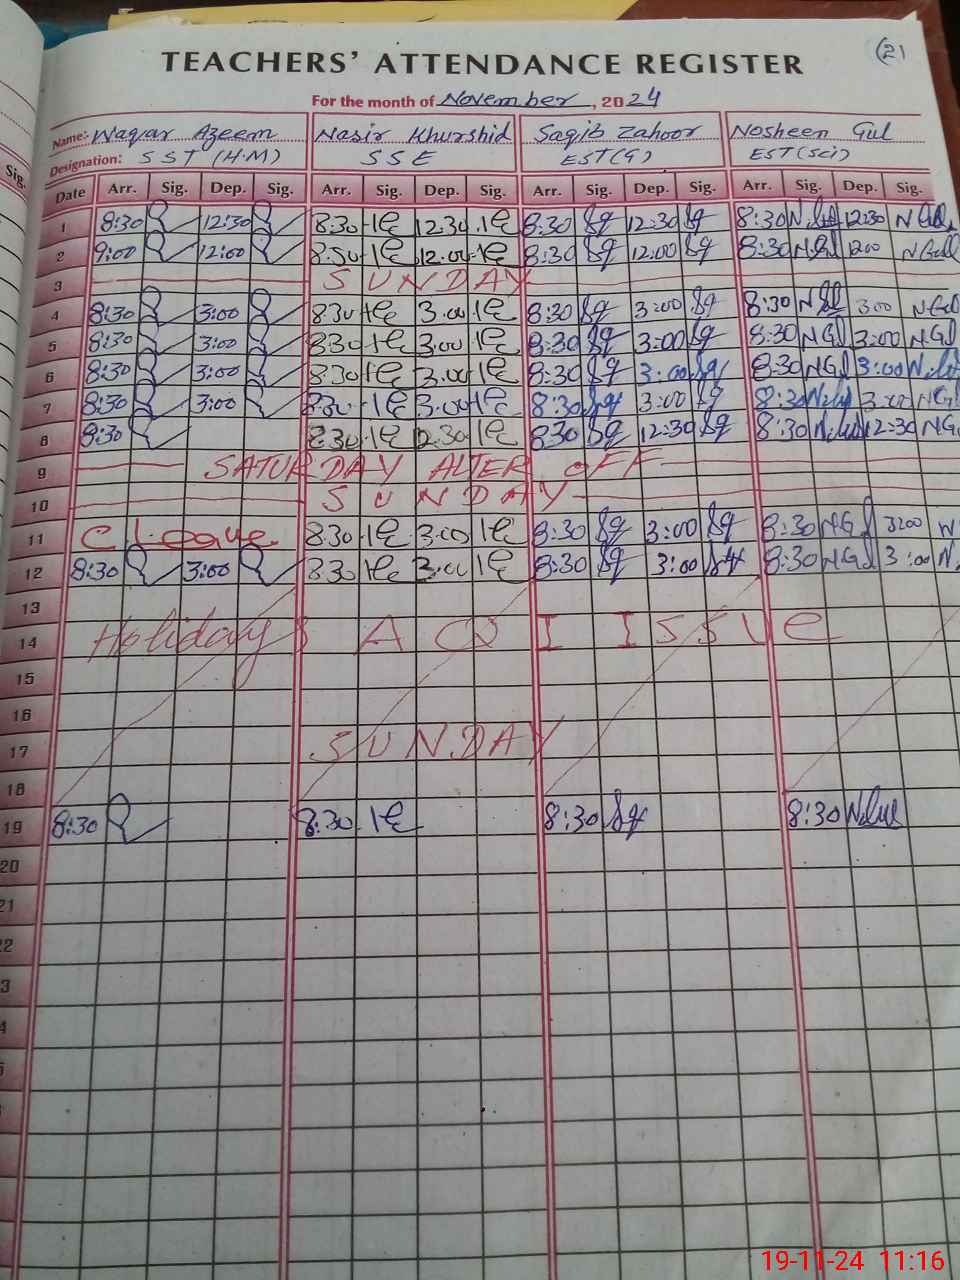 (21
TEACHERS' ATTENDANCE REGISTER
For the month of November, 2024
Name:- Waqar Azeem Nasir Khurshid Saqib Zahoor Nosheen Gul
Designation: SST (H.M) SSE EST(G) EST(Sci)
Sig.
Date Arr. Sig. Dep. Sig. Arr. Sig. Dep. Sig. Arr. Sig. Dep. Sig. Arr. Sig. Dep. Sig.
1 8:30 12:30 8:30 12:30 8:30 12:30 8:30 12:30
2 9:00 12:00 8:30 12:00 8:30 12:00 8:30 NGul 1200 NGull
3 SUNDAY
4 8:30 3:00 8:30 3:00 8:30 3:00 8:30 300 NGul
5 8:30 3:00 8:30 3:00 8:30 3:00 8:30 NGul 3:00 NGul
6 8:30 3:00 8:30 3:00 8:30 3:00 8:30 NGul 3:00
7 8:30 3:00 8:30 3:00 8:30 3:00 8:30 3:00
8 8:30 8:30 12:30 8:30 12:30 8:30 12:30 NG
9 SATURDAY ALTER OFF
10 SUNDAY
11 C.Leave 8:30 3:00 8:30 3:00 8:30 3:00
12 8:30 3:00 8:30 3:00 8:30 3:00 8:30 3:00
13
14 Holidays AQI ISSUE
15
16
17 SUNDAY
18
19 8:30 8:30 8:30 8:30
20
21
22
3
4
19-11-24 11:16